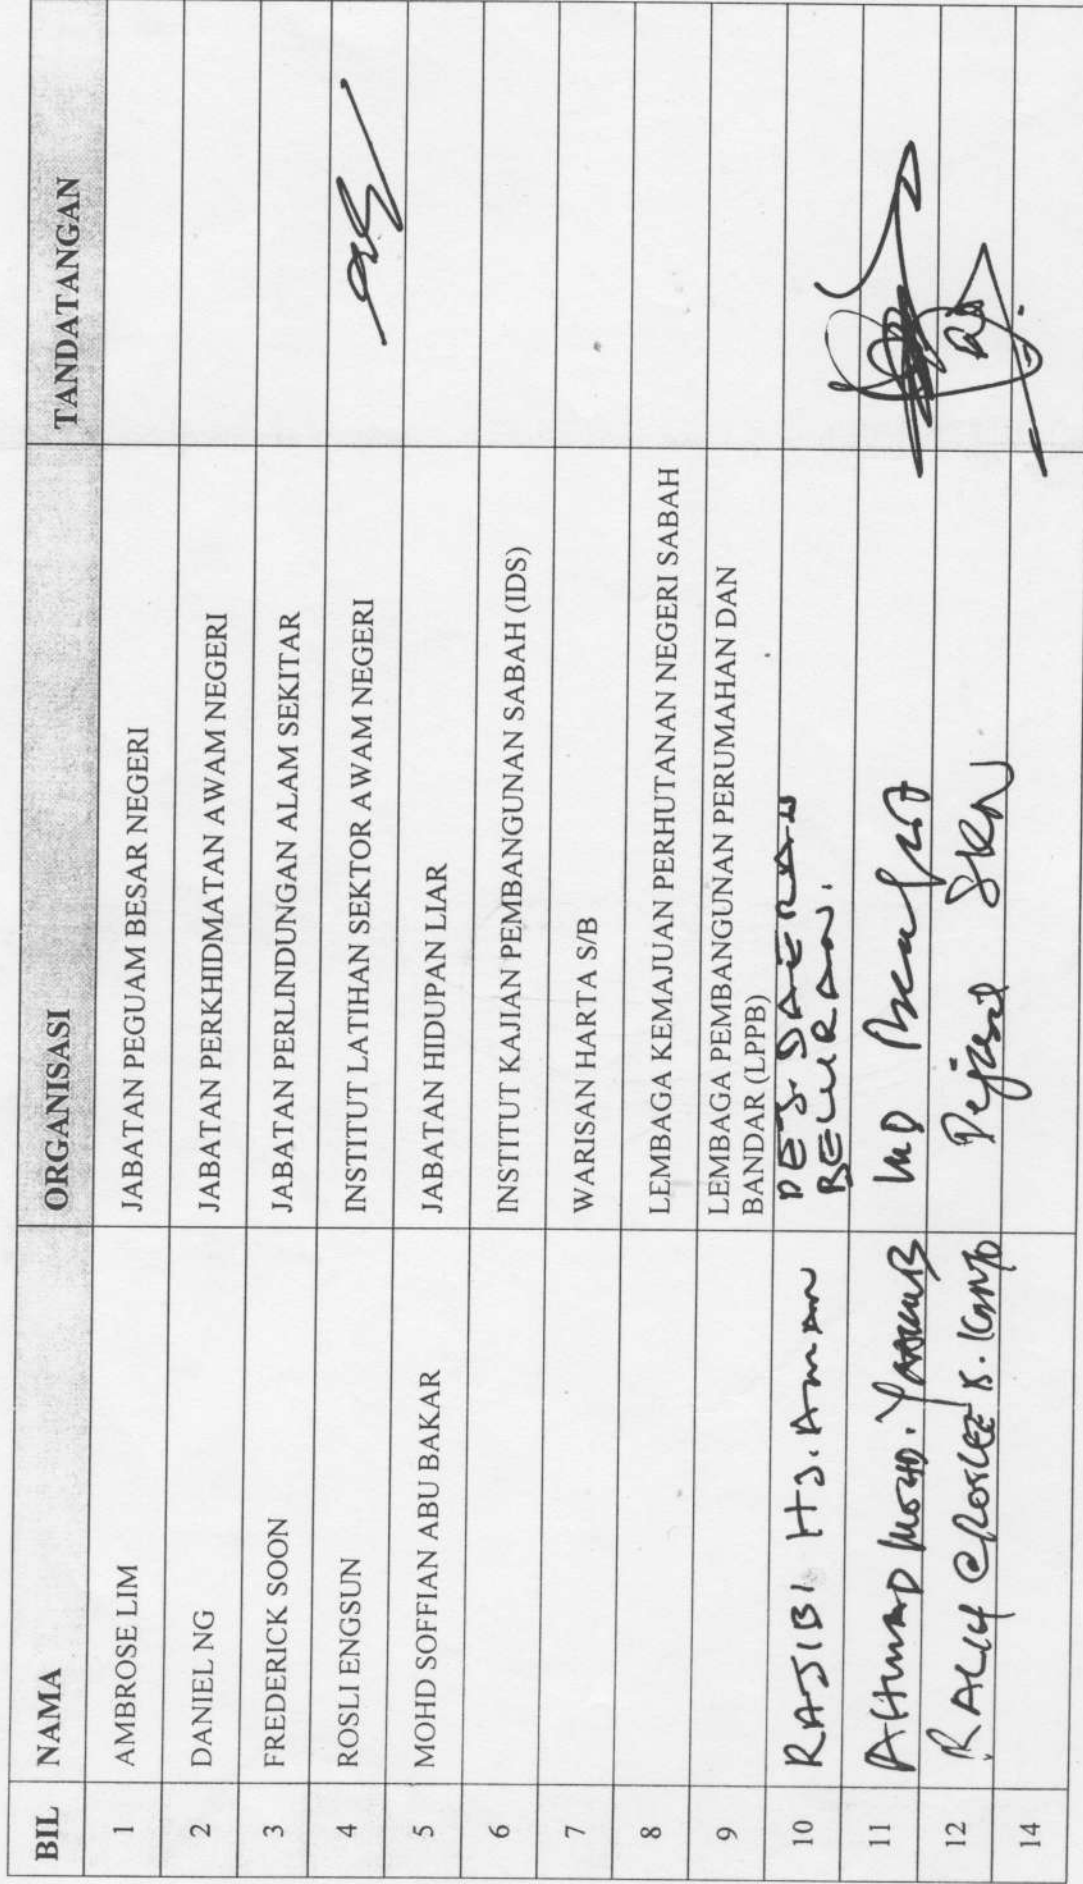 BIL NAMA ORGANISASI TANDATANGAN
1 AMBROSE LIM JABATAN PEGUAM BESAR NEGERI
2 DANIEL NG JABATAN PERKHIDMATAN AWAM NEGERI
3 FREDERICK SOON JABATAN PERLINDUNGAN ALAM SEKITAR
4 ROSLI ENGSUN INSTITUT LATIHAN SEKTOR AWAM NEGERI
5 MOHD SOFFIAN ABU BAKAR JABATAN HIDUPAN LIAR
6 INSTITUT KAJIAN PEMBANGUNAN SABAH (IDS)
7 WARISAN HARTA S/B
8 LEMBAGA KEMAJUAN PERHUTANAN NEGERI SABAH
9 LEMBAGA PEMBANGUNAN PERUMAHAN DAN
BANDAR (LPPB)
10 RAJIBI HJ. AMAN PEJ. DAERAH
BELURAN.
11 AHMAD MOHD. YAAKUB MD
12 RALIH @ ROSLEE B. Pejabat SKN
14